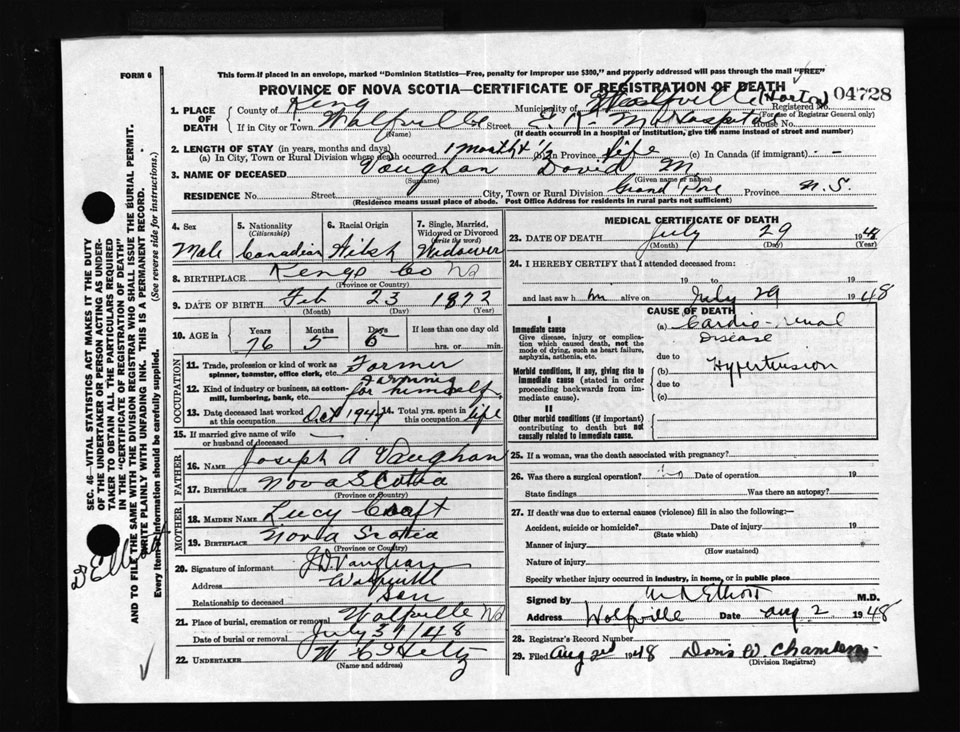 FORM 6
This form if placed in an envelope, marked "Dominion Statistics—Free, penalty for improper use $300," and properly addressed will pass through the mail "FREE"
PROVINCE OF NOVA SCOTIA—CERTIFICATE OF REGISTRATION OF DEATH
Registered No. 04728
(For use of Registrar General only)
1. PLACE OF DEATH County of Kings Municipality of Wolfville (Horton)
If in City or Town Wolfville Street E. K. M. Hospital House No.
(Name) (If death occurred in a hospital or institution, give the name instead of street and number)
2. LENGTH OF STAY (in years, months and days)
(a) In City, Town or Rural Division where death occurred 1 month (b) In Province life (c) In Canada (if immigrant) -
3. NAME OF DECEASED Vaughan David M.
(Surname) (Given name or names)
RESIDENCE No. Street City, Town or Rural Division Grand Pre Province N.S.
(Residence means usual place of abode. Post Office Address for residents in rural parts not sufficient)
4. Sex 5. Nationality (Citizenship) 6. Racial Origin 7. Single, Married, Widowed or Divorced (write the word)
Male Canadian Widower
8. BIRTHPLACE Kings Co NS
(Province or Country)
9. DATE OF BIRTH Feb 23 1872
(Month) (Day) (Year)
10. AGE in Years Months Days If less than one day old
76 5 hrs. or min.
OCCUPATION
11. Trade, profession or kind of work as spinner, teamster, office clerk, etc. Farmer
12. Kind of industry or business, as cotton-mill, lumbering, bank, etc. farming for himself
13. Date deceased last worked at this occupation Oct 1947 14. Total yrs. spent in this occupation life
15. If married give name of wife or husband of deceased —
FATHER
16. NAME Joseph A Vaughan
17. BIRTHPLACE Nova Scotia
(Province or Country)
MOTHER
18. MAIDEN NAME Lucy
19. BIRTHPLACE Nova Scotia
(Province or Country)
20. Signature of informant J D Vaughan
Address Wolfville
Relationship to deceased Son
21. Place of burial, cremation or removal Wolfville NS
Date of burial or removal July 31/48
22. UNDERTAKER
(Name and address)
MEDICAL CERTIFICATE OF DEATH
23. DATE OF DEATH July 29 1948
(Month) (Day) (Year)
24. I HEREBY CERTIFY that I attended deceased from:
19 to 19
and last saw him alive on July 29 1948
CAUSE OF DEATH
I
Immediate cause (a) Cardio-renal Disease
Give disease, injury or complication which caused death, not the mode of dying, such as heart failure, asphyxia, asthenia, etc.
due to
Morbid conditions, if any, giving rise to immediate cause (stated in order proceeding backwards from immediate cause).
(b) Hypertension
due to
(c)
II
Other morbid conditions (if important) contributing to death but not causally related to immediate cause.
25. If a woman, was the death associated with pregnancy?
26. Was there a surgical operation? Date of operation 19
State findings Was there an autopsy?
27. If death was due to external causes (violence) fill in also the following:—
Accident, suicide or homicide? Date of injury 19
(State which)
Manner of injury
(How sustained)
Nature of injury
Specify whether injury occurred in industry, in home, or in public place
Signed by Elliott M.D.
Address Wolfville Date Aug 2 1948
28. Registrar's Record Number
29. Filed Aug 2nd 1948 Doris W.
(Division Registrar)
SEC. 46—VITAL STATISTICS ACT MAKES IT THE DUTY
OF THE UNDERTAKER OR PERSON ACTING AS UNDER-
TAKER TO OBTAIN ALL THE PARTICULARS REQUIRED
IN THE "CERTIFICATE OF REGISTRATION OF DEATH"
AND TO FILE THE SAME WITH THE DIVISION REGISTRAR WHO SHALL ISSUE THE BURIAL PERMIT.
WRITE PLAINLY WITH UNFADING INK. THIS IS A PERMANENT RECORD.
Every item of information should be carefully supplied. (See reverse side for instructions.)